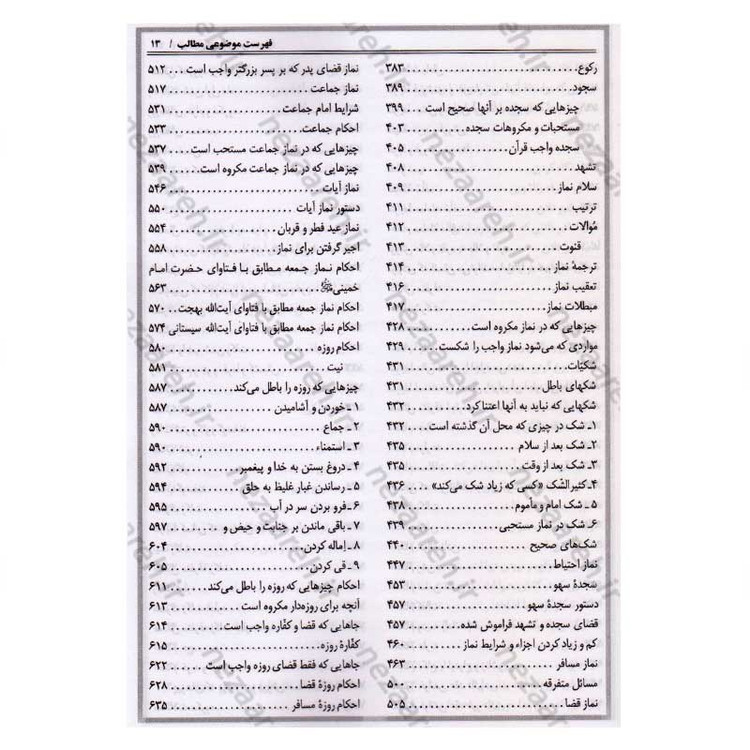 فهرست موضوعی مطالب / ۱۳
رکوع. ۳۸۳
سجود ۳۸۹
چیزهایی که سجده بر آنها صحیح است ۳۹۹
مستحبات و مکروهات سجده ۴۰۳
سجده واجب قرآن ۴۰۵
تشهد ۴۰۸
سلام نماز ۴۰۹
ترتیب ۴۱۱
مُوالات ۴۱۲
قنوت ۴۱۳
ترجمهٔ نماز ۴۱۴
تعقیب نماز ۴۱۶
مبطلات نماز ۴۱۷
چیزهایی که در نماز مکروه است ۴۲۸
مواردی که می‌شود نماز واجب را شکست ۴۲۹
شکیّات ۴۳۱
شکهای باطل ۴۳۱
شکهایی که نباید به آنها اعتنا کرد ۴۳۲
۱ـ شک در چیزی که محل آن گذشته است ۴۳۲
۲ـ شک بعد از سلام ۴۳۵
۳ـ شک بعد از وقت ۴۳۵
۴ـ کثیرالشّک «کسی که زیاد شک می‌کند» ۴۳۶
۵ ـ شک امام و مأموم ۴۳۸
۶ـ شک در نماز مستحبی ۴۳۹
شک‌های صحیح ۴۴۰
نماز احتیاط ۴۴۷
سجدهٔ سهو ۴۵۳
دستور سجدهٔ سهو ۴۵۷
قضای سجده و تشهد فراموش شده ۴۵۷
کم و زیاد کردن اجزاء و شرایط نماز ۴۶۰
نماز مسافر ۴۶۳
مسائل متفرقه ۵۰۰
نماز قضا ۵۰۵
نماز قضای پدر که بر پسر بزرگتر واجب است ۵۱۲
نماز جماعت ۵۱۷
شرایط امام جماعت ۵۳۱
احکام جماعت ۵۳۳
چیزهایی که در نماز جماعت مستحب است ۵۳۷
چیزهایی که در نماز جماعت مکروه است ۵۳۹
نماز آیات ۵۴۶
دستور نماز آیات ۵۵۰
نماز عید فطر و قربان ۵۵۴
اجیر گرفتن برای نماز ۵۵۸
احکام نماز جمعه مطابق با فتاوای حضرت امام
خمینی ۵۶۳
احکام نماز جمعه مطابق با فتاوای آیت‌الله بهجت ۵۷۰
احکام نماز جمعه مطابق با فتاوای آیت‌الله سیستانی ۵۷۴
احکام روزه ۵۸۰
نیت ۵۸۱
چیزهایی که روزه را باطل می‌کند ۵۸۷
۱ ـ خوردن و آشامیدن ۵۸۷
۲ ـ جماع ۵۹۰
۳ ـ استمناء ۵۹۰
۴ ـ دروغ بستن به خدا و پیغمبر ۵۹۲
۵ ـ رساندن غبار غلیظ به حلق ۵۹۴
۶ ـ فرو بردن سر در آب ۵۹۵
۷ ـ باقی ماندن بر جنابت و حیض و ۵۹۷
۸ ـ اِماله کردن ۶۰۴
۹ ـ قی کردن ۶۰۵
احکام چیزهایی که روزه را باطل می‌کند ۶۱۱
آنچه برای روزه‌دار مکروه است ۶۱۳
جاهایی که قضا و کفّاره واجب است ۶۱۴
کفّارهٔ روزه ۶۱۵
جاهایی که فقط قضای روزه واجب است ۶۲۲
احکام روزهٔ قضا ۶۲۸
احکام روزهٔ مسافر ۶۳۵
nezaareh.ir